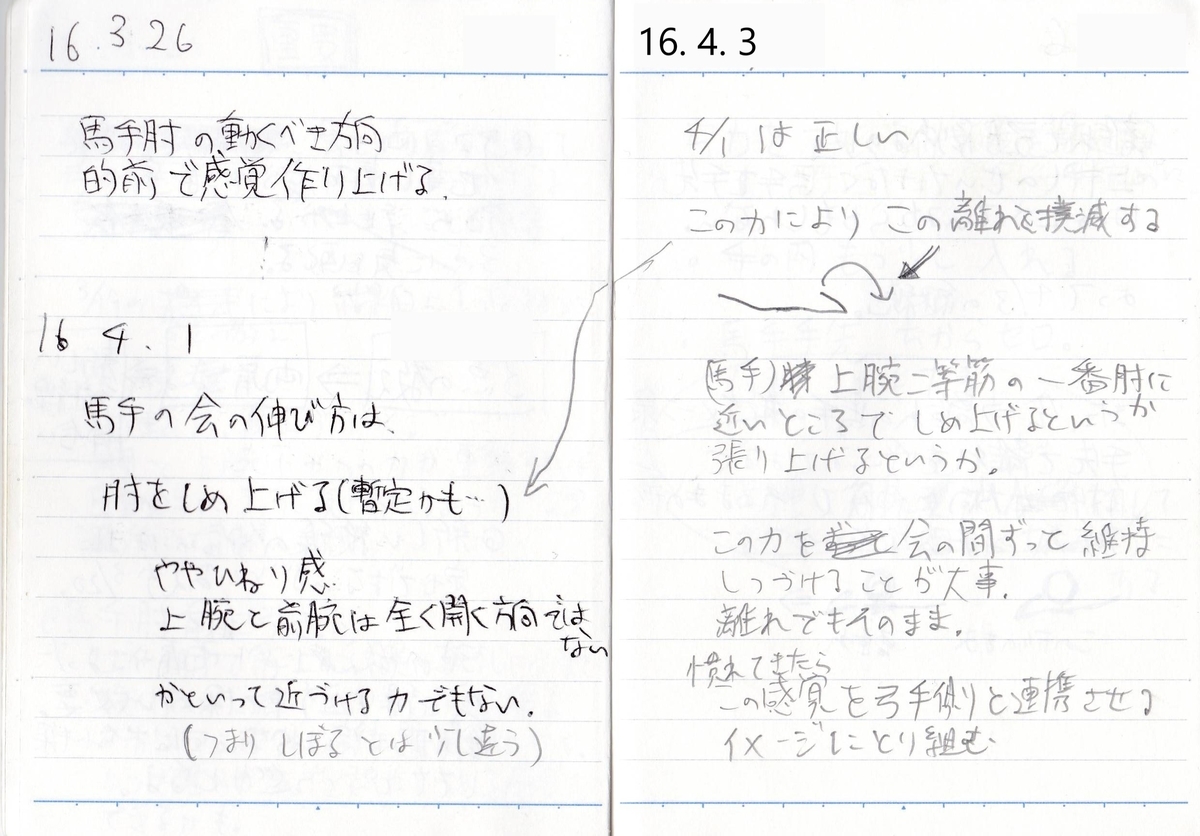 16.3.26
馬手肘の動くべき方向
的前で感覚作り上げる.
16 4.1
馬手の会の伸び方は、
肘をしめ上げる(暫定かも…)
ややひねり感
上腕と前腕は全く開く方向では
ない
かといって近づける力でもない.
(つまりしぼるとは少し違う)
16. 4. 3
4/1は正しい
この力によりこの離れを撲滅する
(馬手)上腕二等筋の一番肘に
近いところでしめ上げるというか
張り上げるというか。
この力を会の間ずっと維持
しつづけることが大事.
離れでもそのまま.
慣れてきたら
この感覚を弓手側と連携させる
イメージにとり組む